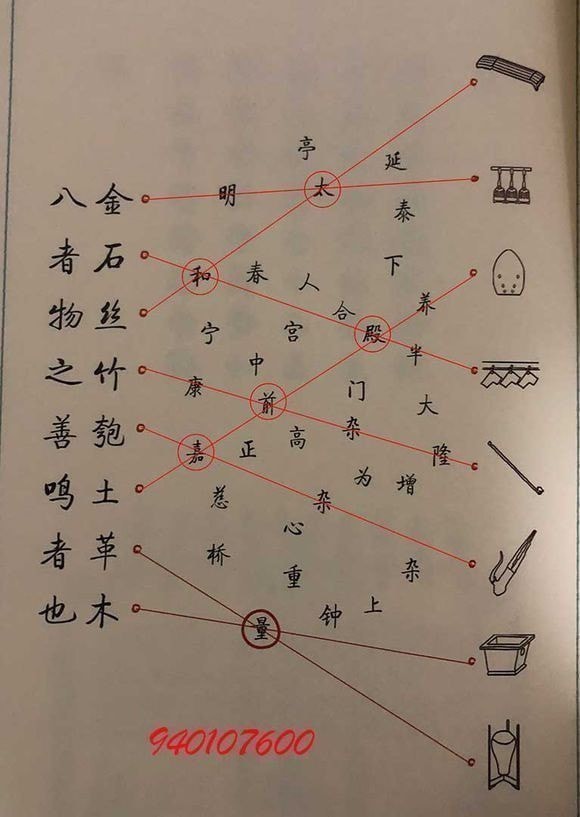 金石丝竹匏土革木
八者物之善鸣者也
亭
延
明
太
泰
和
春
人
下
养
合
宁
宫
殿
中
半
康
前
门
大
嘉
正
高
杂
隆
慈
杂
为
增
心
桥
重
杂
量
钟
上
940107600